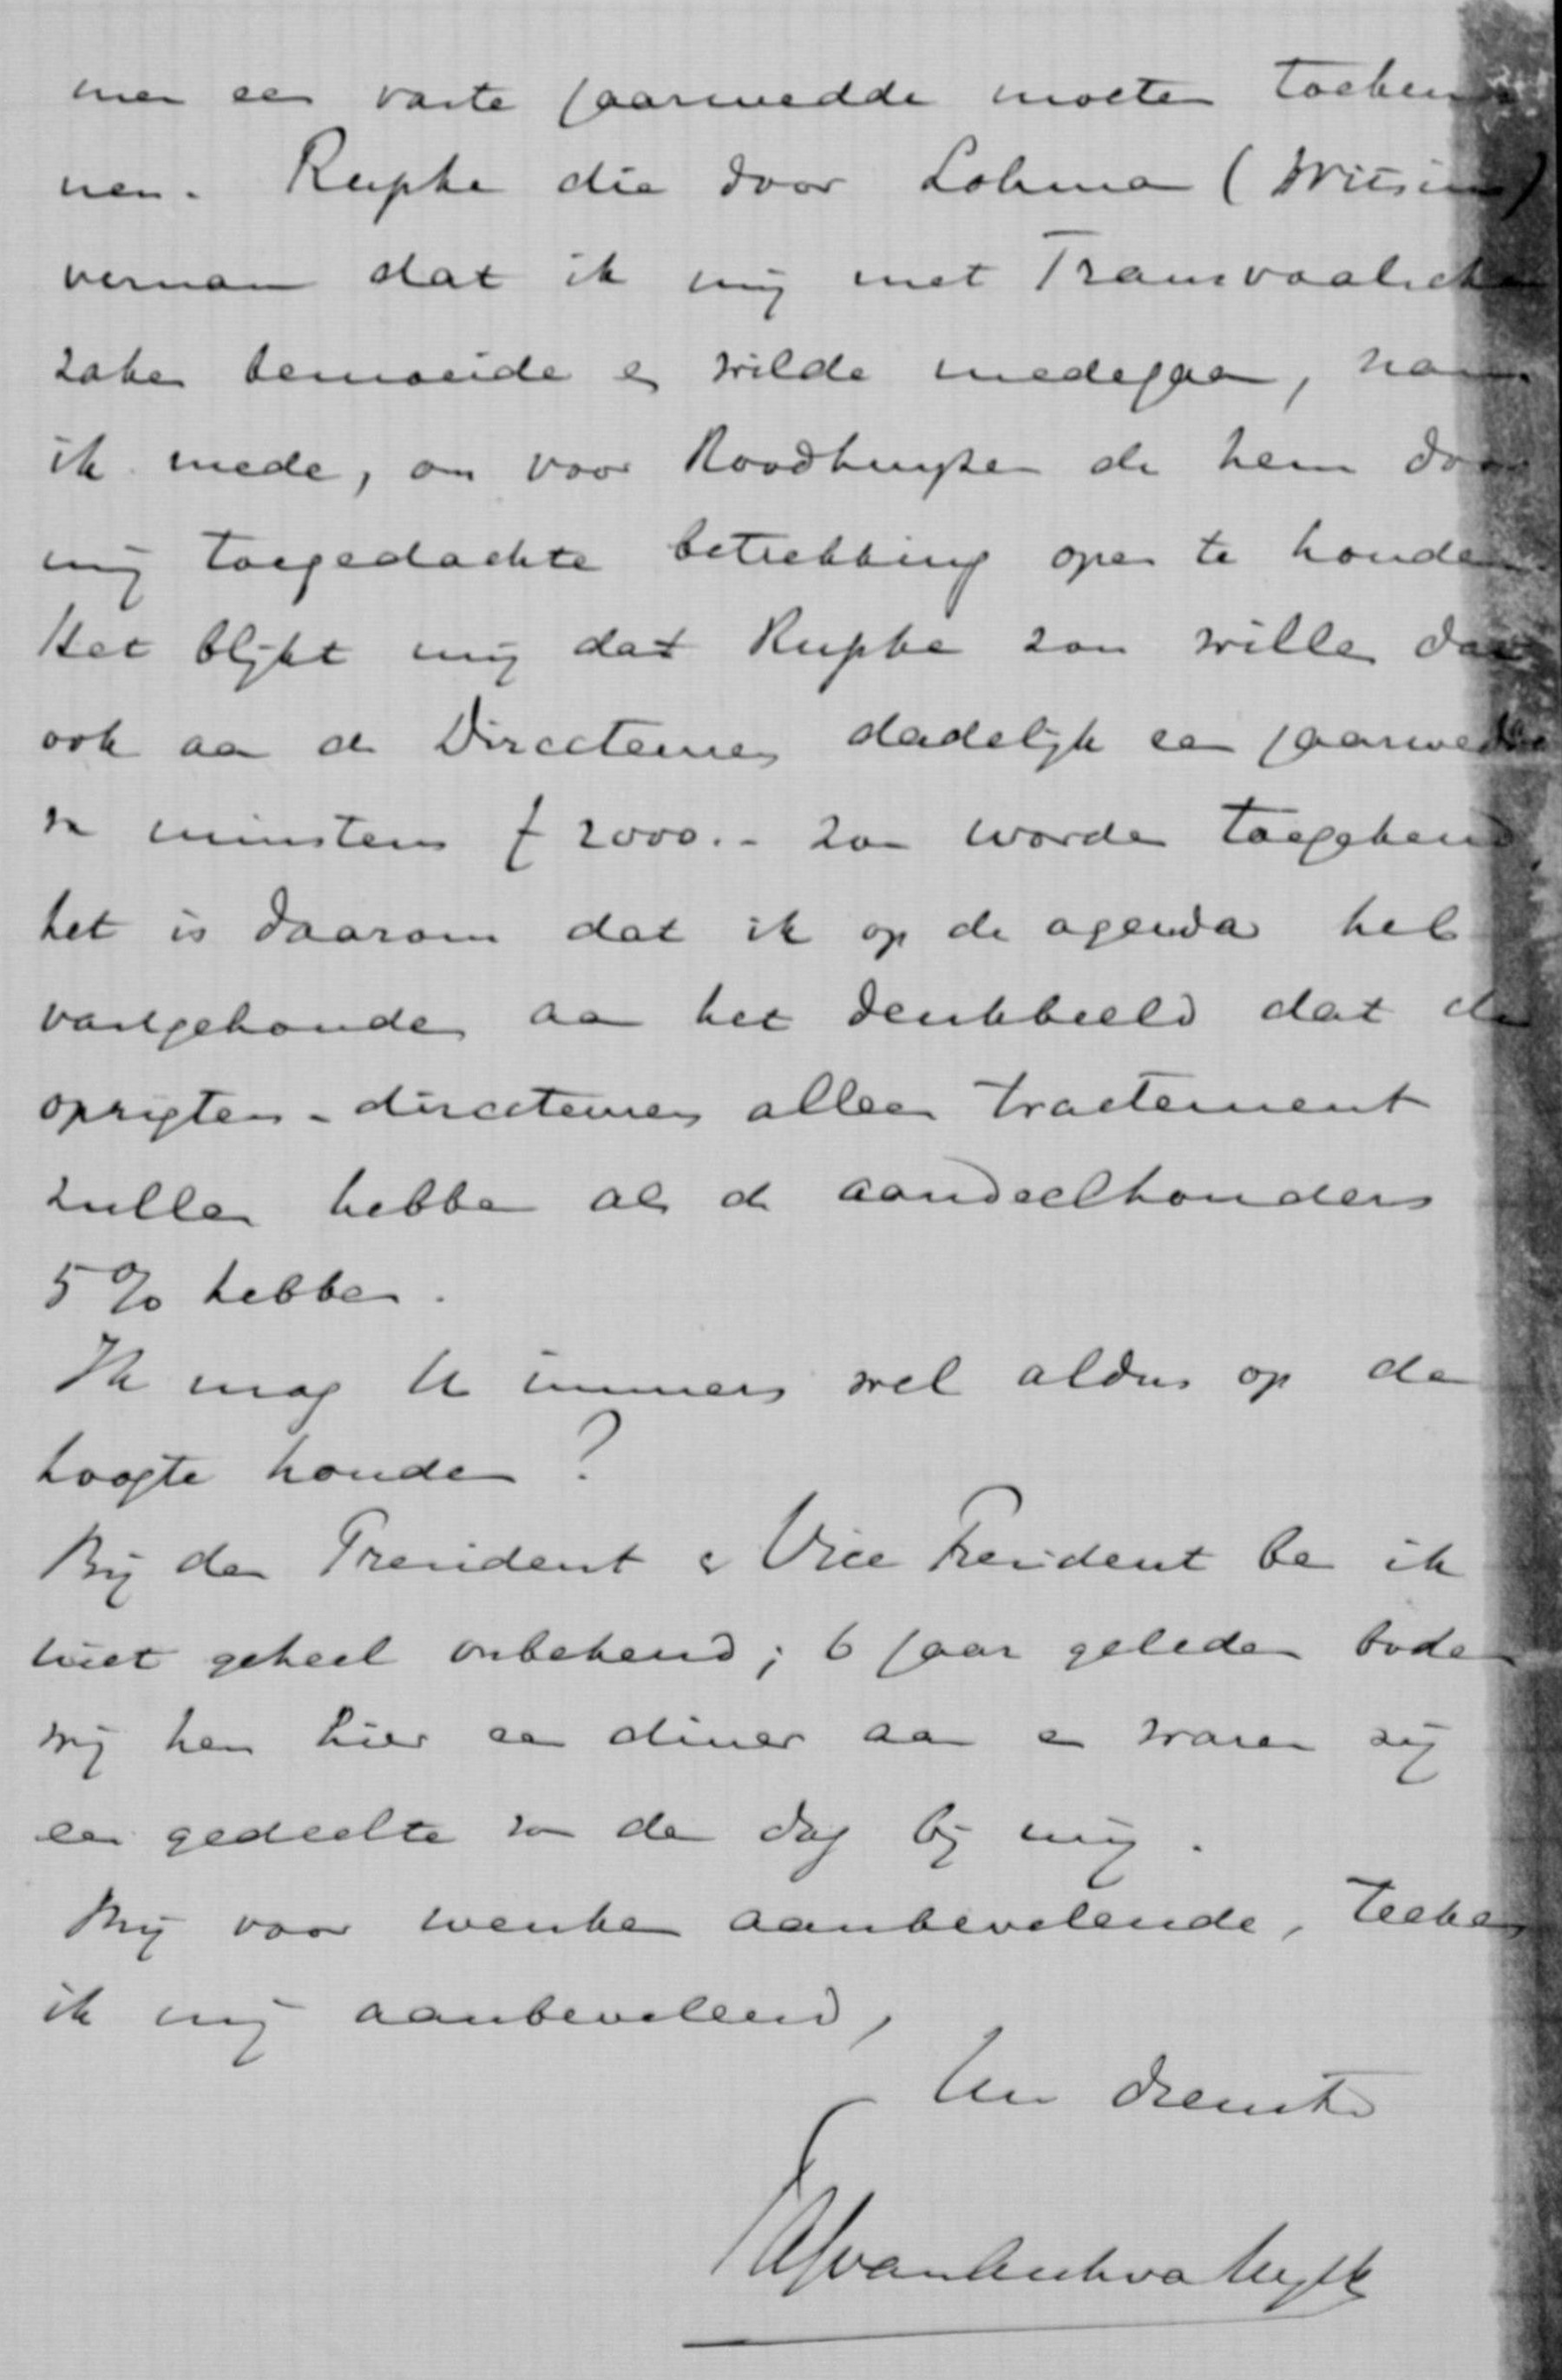 men een vaste jaarwedde moeten toeken
nen. Rupke die door Lohma (Witsius)
vernam dat ik mij met Transvaalsche
zaken bemoeide en wilde medegaan, nam
ik mede, om voor Roodhuyzen de hem door
mij toegedachte betrekking open te houden.
Het blijkt mij dat Rupke zou willen dat
ook aan de Directeuren dadelijk een jaarwedde
van minstens f 2000.- zou worden toegekend,
het is daarom dat ik op de agenda heb
vastgehouden aan het denkbeeld dat de
oprigters-directeuren alleen tractement
zullen hebben als de aandeelhouders
5 % hebben.
Ik mag U immers wel aldus op de
hoogte houden?
Bij den President & Vice President ben ik
niet geheel onbekend; 6 jaar geleden boden
wij hen hier een diner aan en waren zij
een gedeelte van den dag bij mij.
Mij voor wenken aanbevelende, teeken
ik mij aanbevelend,
Uw dienstv